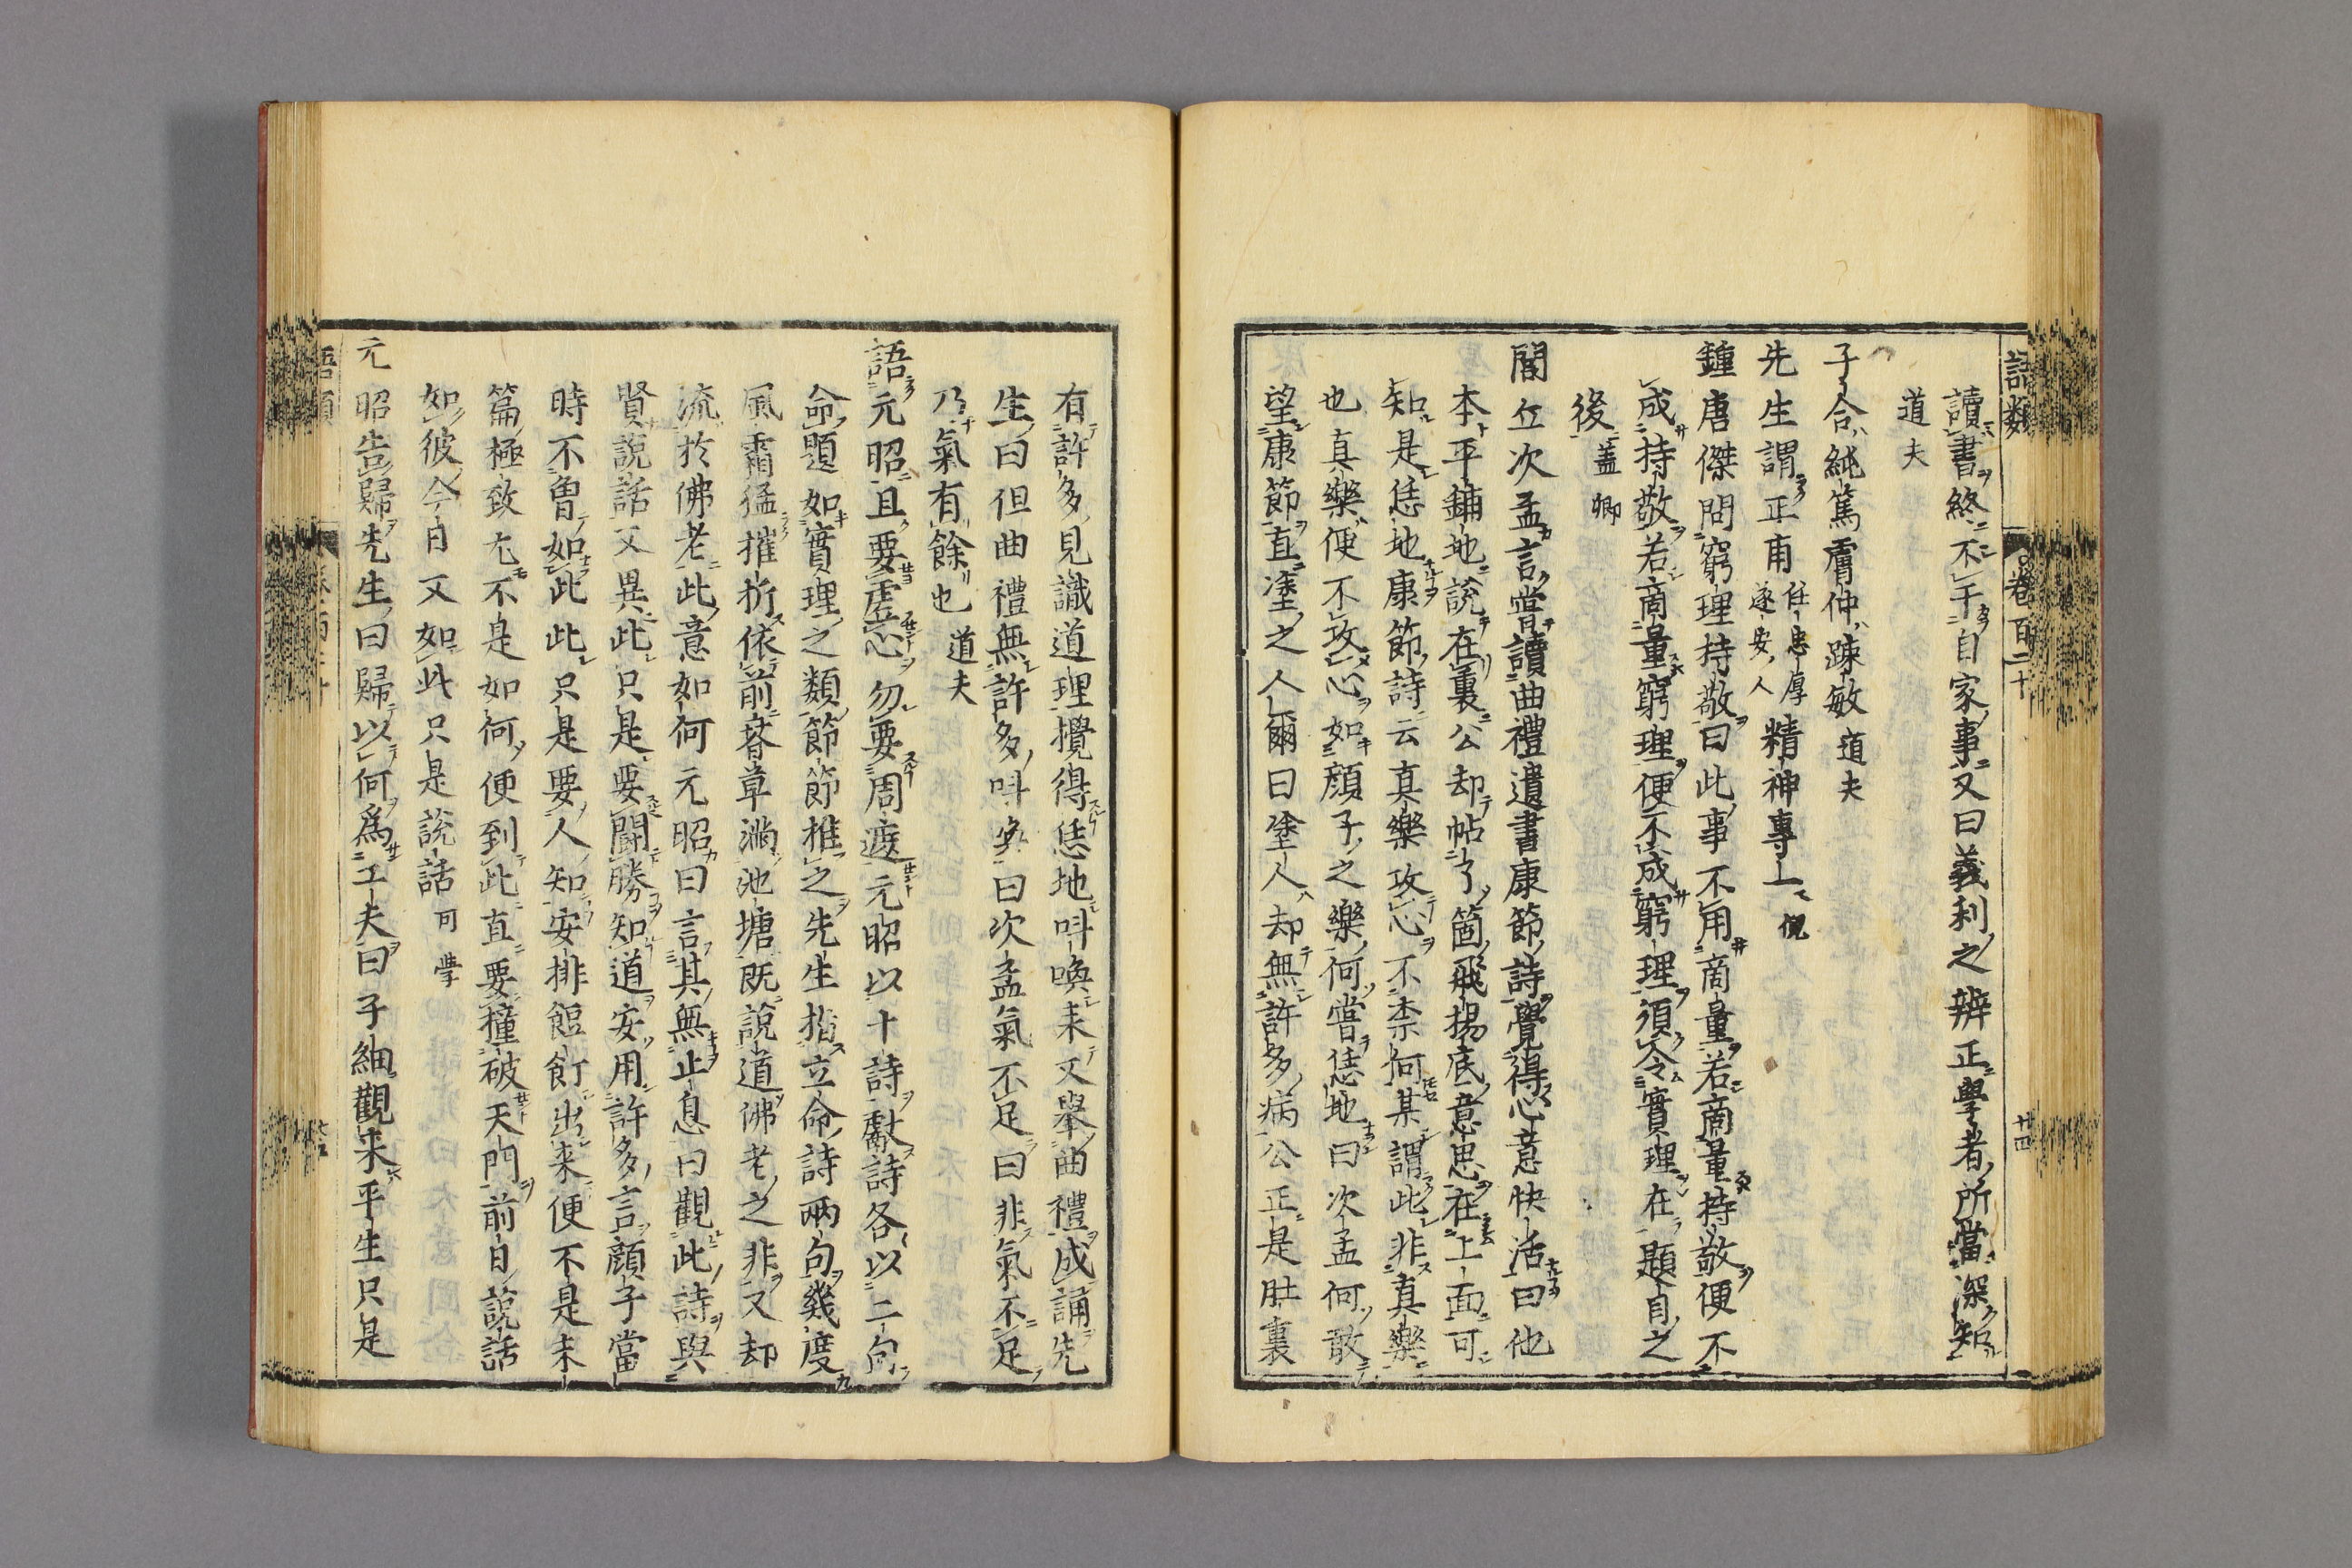 語類
卷百二十
廿四
讀書終不干自家事又曰義利之辨正學者所當深知
道夫
子合純篤膚仲踈敏道夫
先生謂正甫任忠厚遂安人精神專一倪
鍾唐傑問窮理持敬曰此事不用商量若商量持敬便不
成持敬若商量窮理便不成窮理須令實理在題目之
後蓋卿
閭丘次孟言嘗讀曲禮遺書康節詩覺得心意快活曰他
本平鋪地說在裏公却帖了箇飛揚底意思在上面可
知是恁地康節詩云真樂攻心不柰何某謂此非真樂
也真樂便不攻心如顏子之樂何嘗恁地曰次孟何敢
望康節直塗之人爾曰塗人却無許多病公正是肚裏
有許多見識道理攪得恁地呌喚来又舉曲禮成誦先
生曰但曲禮無許多呌喚曰次孟氣不足曰非氣不足
乃氣有餘也道夫
語元昭且要虛心勿要周遮元昭以十詩獻詩各以二句
命題如實理之類節節推之先生指立命詩兩句幾度
風霜猛摧折依前春草滿池塘既說道佛老之非又却
流於佛老此意如何元昭曰言其無止息曰觀此詩與
賢說話又異此只是要鬬勝知道安用許多言顏子當
時不曾如此此只是要人知安排餖飣出来便不是末
篇極致尤不是如何便到此直要撞破天門前日說話
如彼今日又如此只是說話可學
元昭告歸先生曰歸以何爲工夫曰子細觀来平生只是